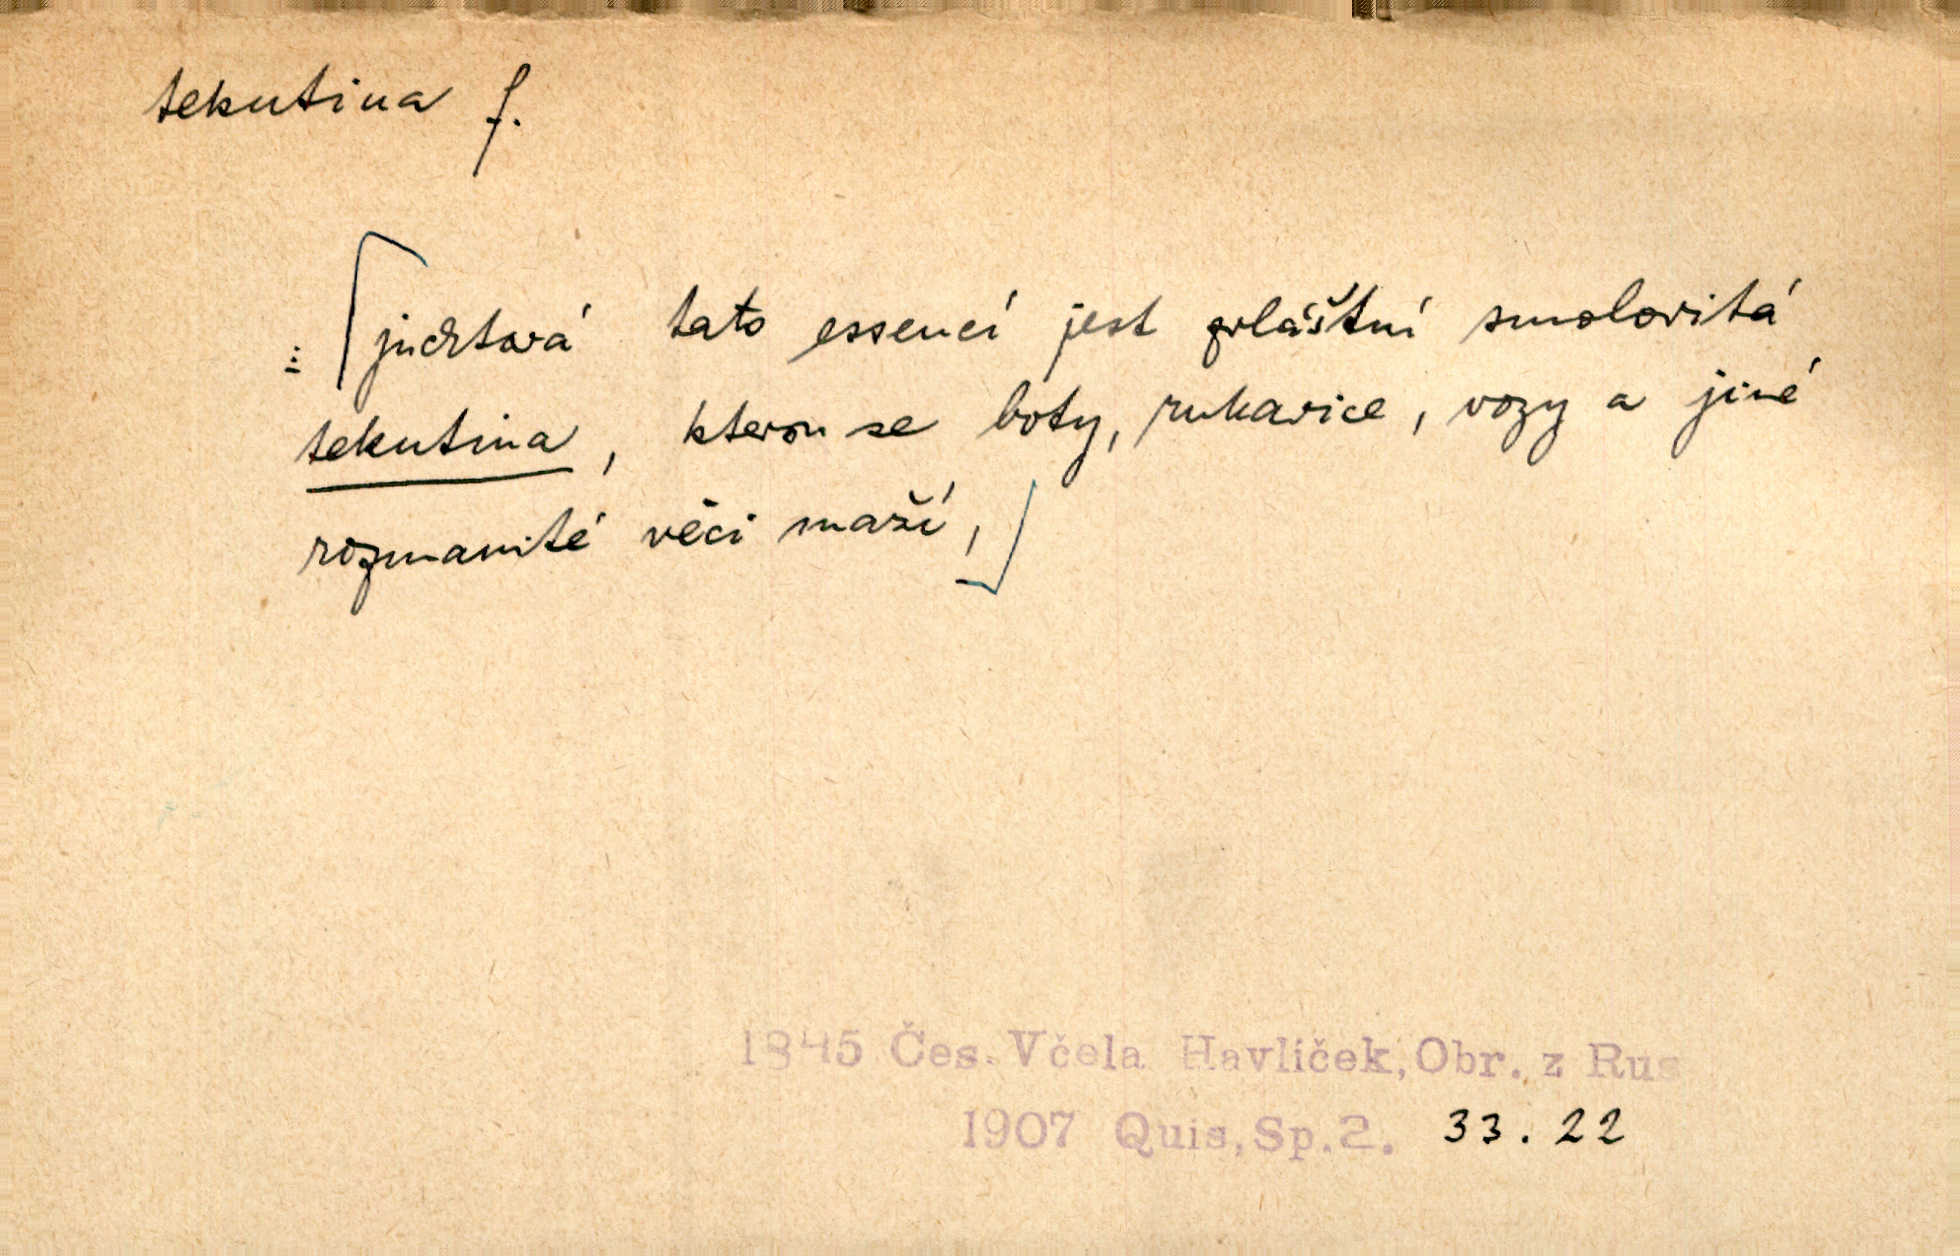 tekutina f.
⌈juchtová tato essencí jest zvláštní smolovitá
tekutina, kterou se boty, rukavice, vozy a jiné
rozmanité věci maží,⌋
1845 Čes. Včela Havlíček, Obr. z Rus
1907 Quis, Sp. 2. 33.22